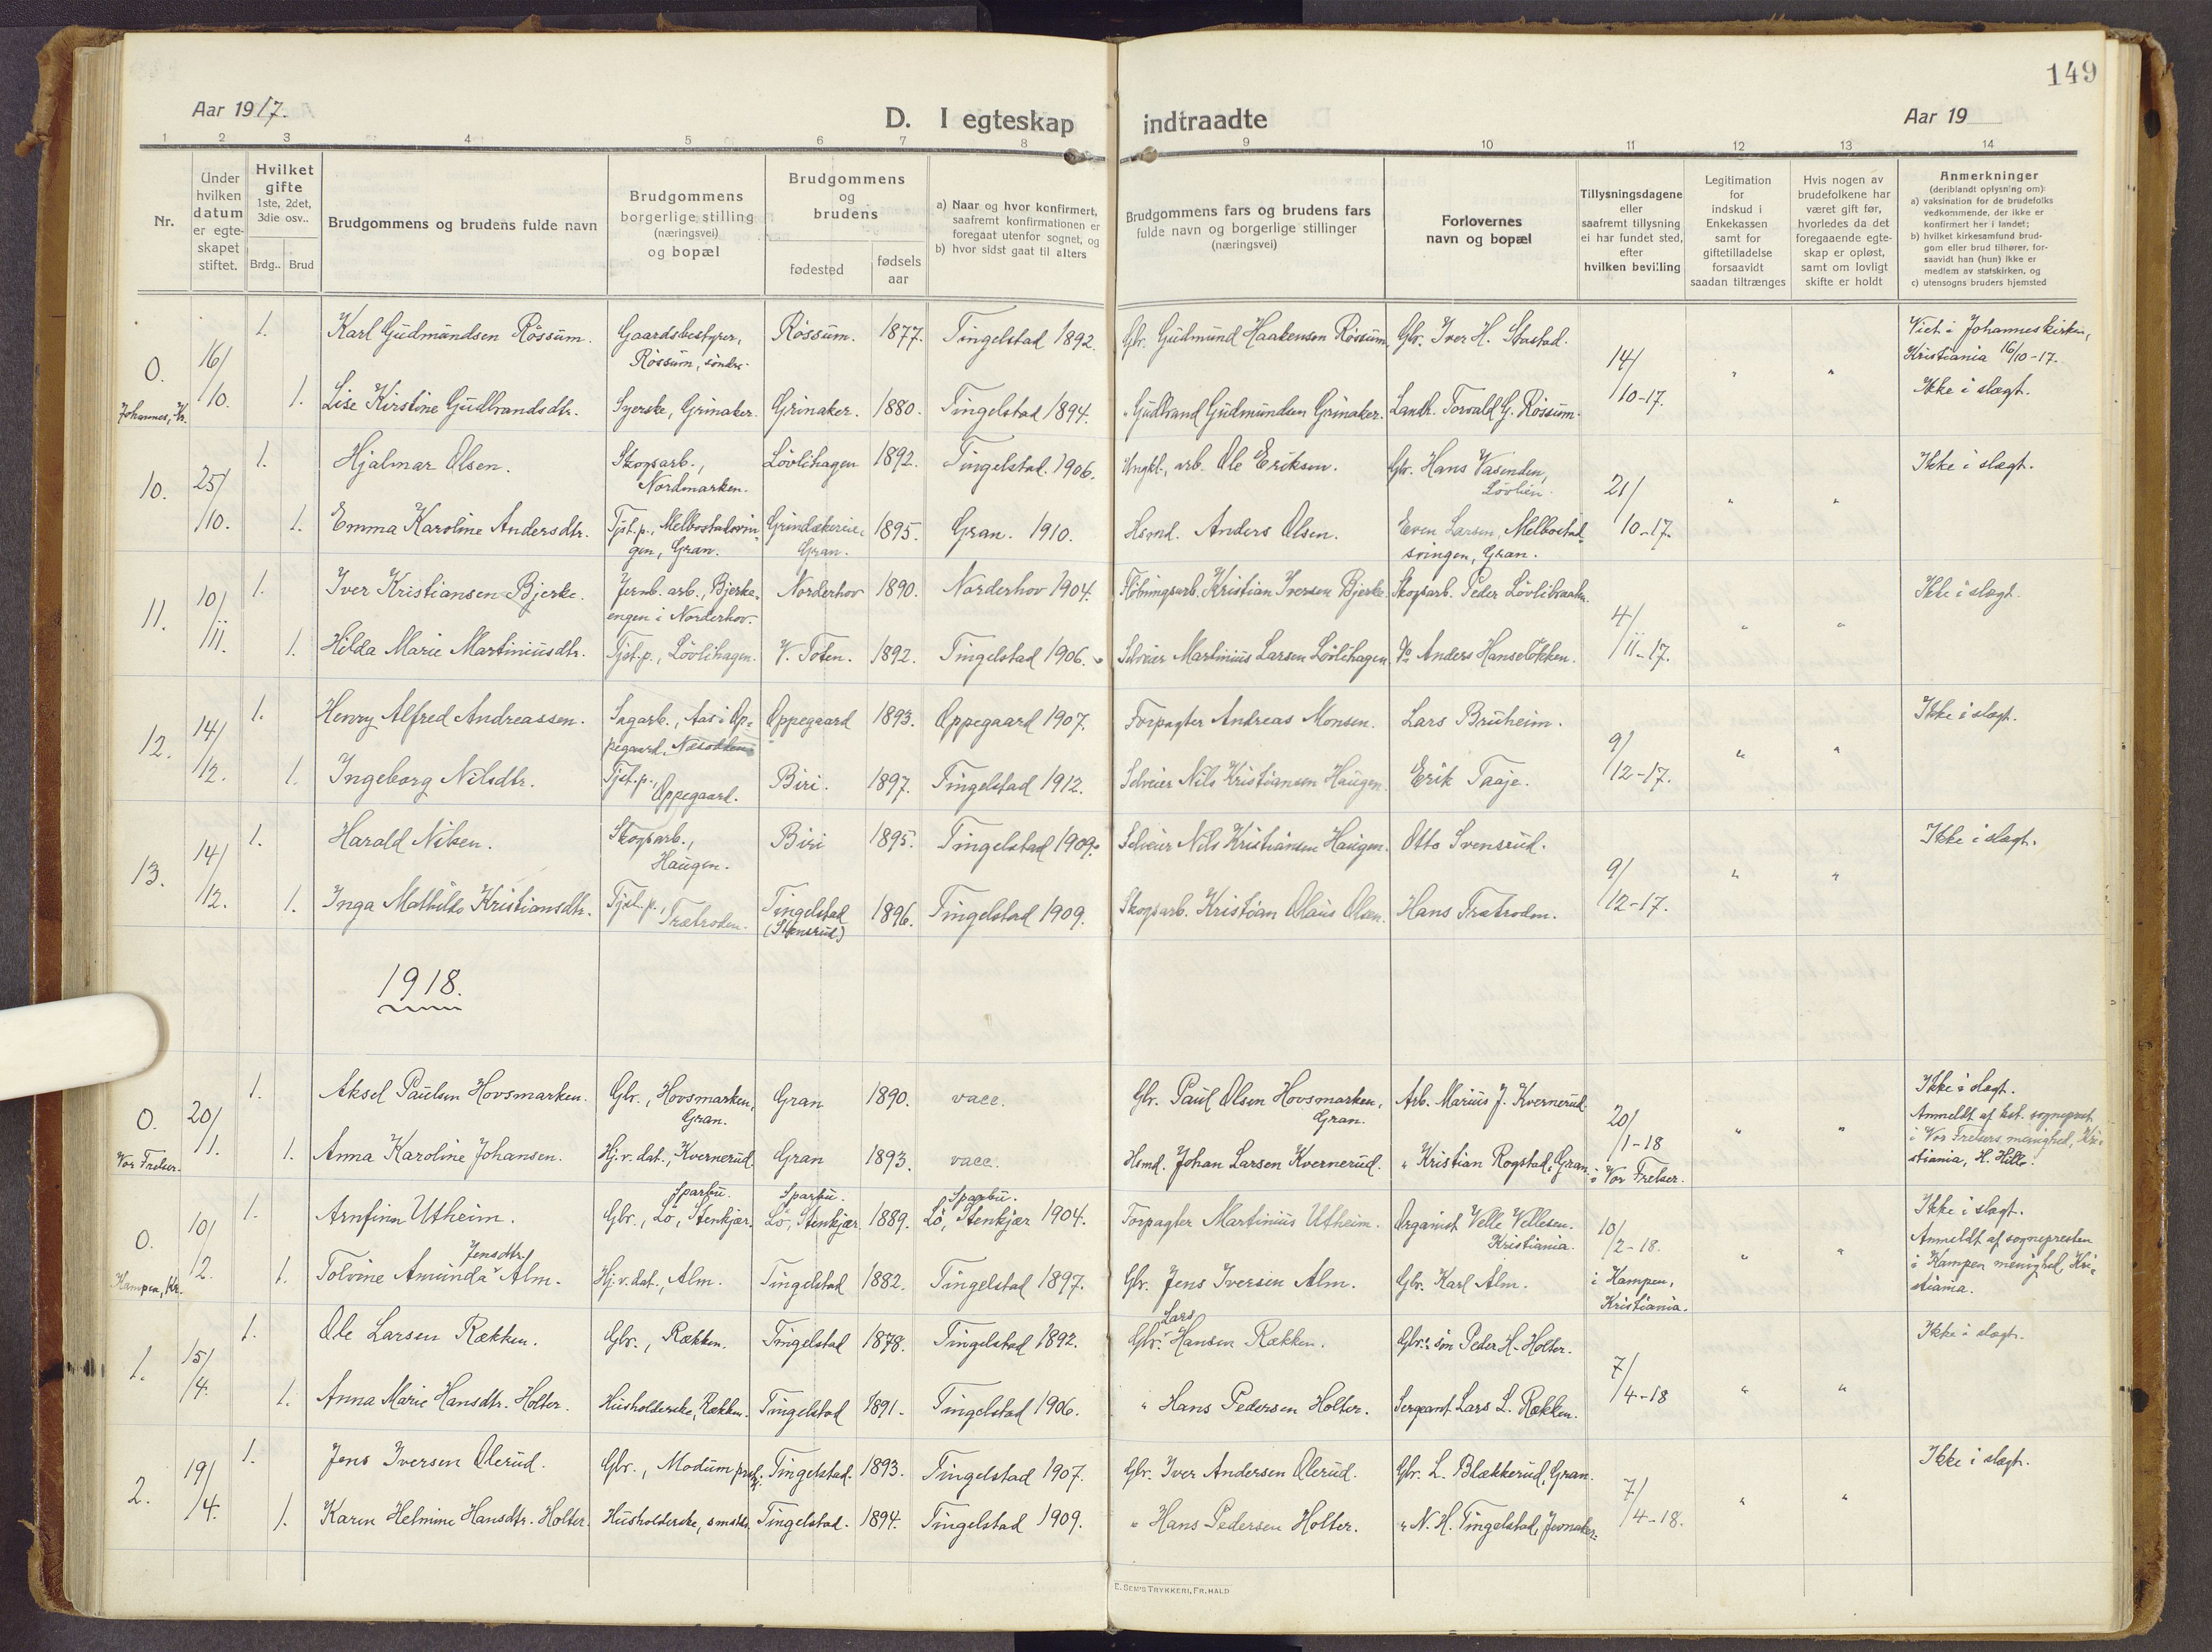 149
Aar 1917.
D. I egteskap indtraadte
Aar 19
1 2 3 4 5 6 7 8 9 10 11 12 13 14
Nr.
Under hvilken datum er egteskapet stiftet.
Hvilket gifte 1ste, 2det, 3die osv..
Brdg.. Brud
Brudgommens og brudens fulde navn
Brudgommens borgerlige stilling (næringsvei) og bopæl
Brudgommens og brudens
fødested
fødsels aar
a) Naar og hvor konfirmert, saafremt konfirmationen er foregaat utenfor sognet, og
b) hvor sidst gaat til alters
Brudgommens fars og brudens fars fulde navn og borgerlige stillinger (næringsvei)
Forlovernes navn og bopæl
Tillysningsdagene eller saafremt tillysning ei har fundet sted, efter hvilken bevilling
Legitimation for indskud i Enkekassen samt for giftetilladelse forsaavidt saadan tiltrænges
Hvis nogen av brudefolkene har været gift før, hvorledes da det foregaaende egteskap er opløst, samt om lovligt skifte er holdt
Anmerkninger
(deriblandt oplysning om):
a) vaksination for de brudefolks vedkommende, der ikke er konfirmert her i landet;
b) hvilket kirkesamfund brudgom eller brud tilhører, forsaavidt han (hun) ikke er medlem av statskirken, og
c) utensogns bruders hjemsted
0. Johannes, Kr. 16/10. 1. Karl Gudmundsen Røssum. Gaardsbestyrer, Røssum, søndre. Røssum. 1877. Tingelstad 1892. Gbr. Gudmund Haakensen Røssum. Gbr. Iver H. Stastad. 14/10-17. " " Viet i Johanneskirken, Kristiania 16/10-17. Ikke i slegt.
1. Lise Kirstine Gudbrandsdtr. Syerske, Grinaker. Grinaker. 1880. Tingelstad 1894. " Gudbrand Gudmundsen Grinaker. Landh. Torvald G. Røssum.
10. 25/10. 1. Hjalmar Olsen. Skogsarb., Nordmarken. Løvlihagen 1892. Tingelstad. 1906. Ungkl., arb. Ole Eriksen. Gbr. Hans Vasenden, Løvlien. 21/10-17. " " Ikke i slægt.
1. Emma Karoline Andersdtr. Tjst.p., Melbostadsvingen, Gran. Gran. 1895. Gran. 1910. Hsmd. Anders Olsen. Even Larsen, Melbostadsvingen, Gran.
11. 10/11. 1. Iver Kristiansen Bjerke. Jernb. arb., Bjerkeengen i Norderhov. Norderhov 1890. Norderhov 1904. Fløtningsarb. Kristian Iversen Bjerke. Skogsarb. Peder Løvlibraaten. 4/11-17. " " Ikke i slægt.
1. Hilda Marie Martiniusdtr. Tjst.p., Løvlihagen. V. Toten. 1892. Tingelstad 1906. Selveier Martinius Larsen Løvlihagen Do Anders Hanseløkken.
12. 14/12. 1. Henry Alfred Andreassen. Sagarb., Aas i Oppegaard, Næsodden Oppegaard 1893. Oppegaard 1907. Forpagter Andreas Monsen. Lars Bruheim. 9/12-17. " " Ikke i slægt.
1. Ingeborg Nilsdtr. Tjst.p., Oppegaard. Biri. 1897. Tingelstad 1912. Selveier Nils Kristiansen Haugen. Erik Taaje.
13. 14/12. 1. Harald Nilsen. Skogsarb., Haugen. Biri 1895. Tingelstad 1909. Selveier Nils Kristiansen Haugen. Otto Svensrud. 9/12-17. " " Ikke i slægt.
1. Inga Mathilde Kristiansdtr. Tjst.p., Trætroden. Tingelstad (Stensrud) 1896. Tingelstad 1909. Skogsarb. Kristian Olaus Olsen. Hans Trætroden.
1918.
0. Vor Frelser. 20/1. 1. Aksel Paulsen Hovsmarken. Gbr., Hovsmarken, Gran. Gran 1890. vacc. Gbr. Paul Olsen Hovsmarken, Gran. Arb. Marius J. Kvernerud. 20/1-18 i Vor Frelser. " " Ikke i slægt. Anmeldt af sogneprest i Vor Frelsers menighed, Kristiania, H. Hille.
1. Anna Karoline Johansen. Hj.v. dat., Kvernerud. Gran 1893. vacc. Hsmd. Johan Larsen Kvernerud. " Kristian Rogstad, Gran
0. Kampen, Kr. 10/2. 1. Arnfinn Utheim. Gbr., Lø, Sparbu. Stenkjær. Lø, Sparbu. Stenkjær 1889. Lø, Sparbu. Stenkjær 1904. Forpagter Martinius Utheim. Organist Velle Vellesen. Kristiania. 10/2-18. i Kampen, Kristiania. " " Ikke i slægt. Anmeldt af sognepresten i Kampen menighed, Kristiania.
1. Tolvine Amunda Jensdtr. Alm. Hj.v.dat., Alm. Tingelstad 1882. Tingelstad 1897. Gbr. Jens Iversen Alm. Gbr. Karl Alm.
1. 15/4. 1. Ole Larsen Rækken. Gbr., Rækken. Tingelstad 1878. Tingelstad 1892. Gbr. Lars Hansen Rækken. Gbr. Peder H. Holter. 7/4-18 " " Ikke i slægt.
1. Anna Marie Hansdtr. Holter. Husholderske, Rækken. Tingelstad 1891. Tingelstad 1906. " Hans Pedersen Holter. Sergeant Lars L. Rækken.
2. 19/4. 1. Jens Iversen Olerud. Gbr., Modum Tingelstad. 1893. Tingelstad 1907. Gbr. Iver Andersen Olerud. Gbr. L. Blækkerud, Gran. 7/4-18. " " Ikke i slægt.
1. Karen Helmine Hansdtr. Holter. Husholderske, Tingelstad. 1894. Tingelstad 1909. " Hans Pedersen Holter. " N. H. Tingelstad, Jevnaker.
E. SEM'S TRYKKERI, FR.HALD